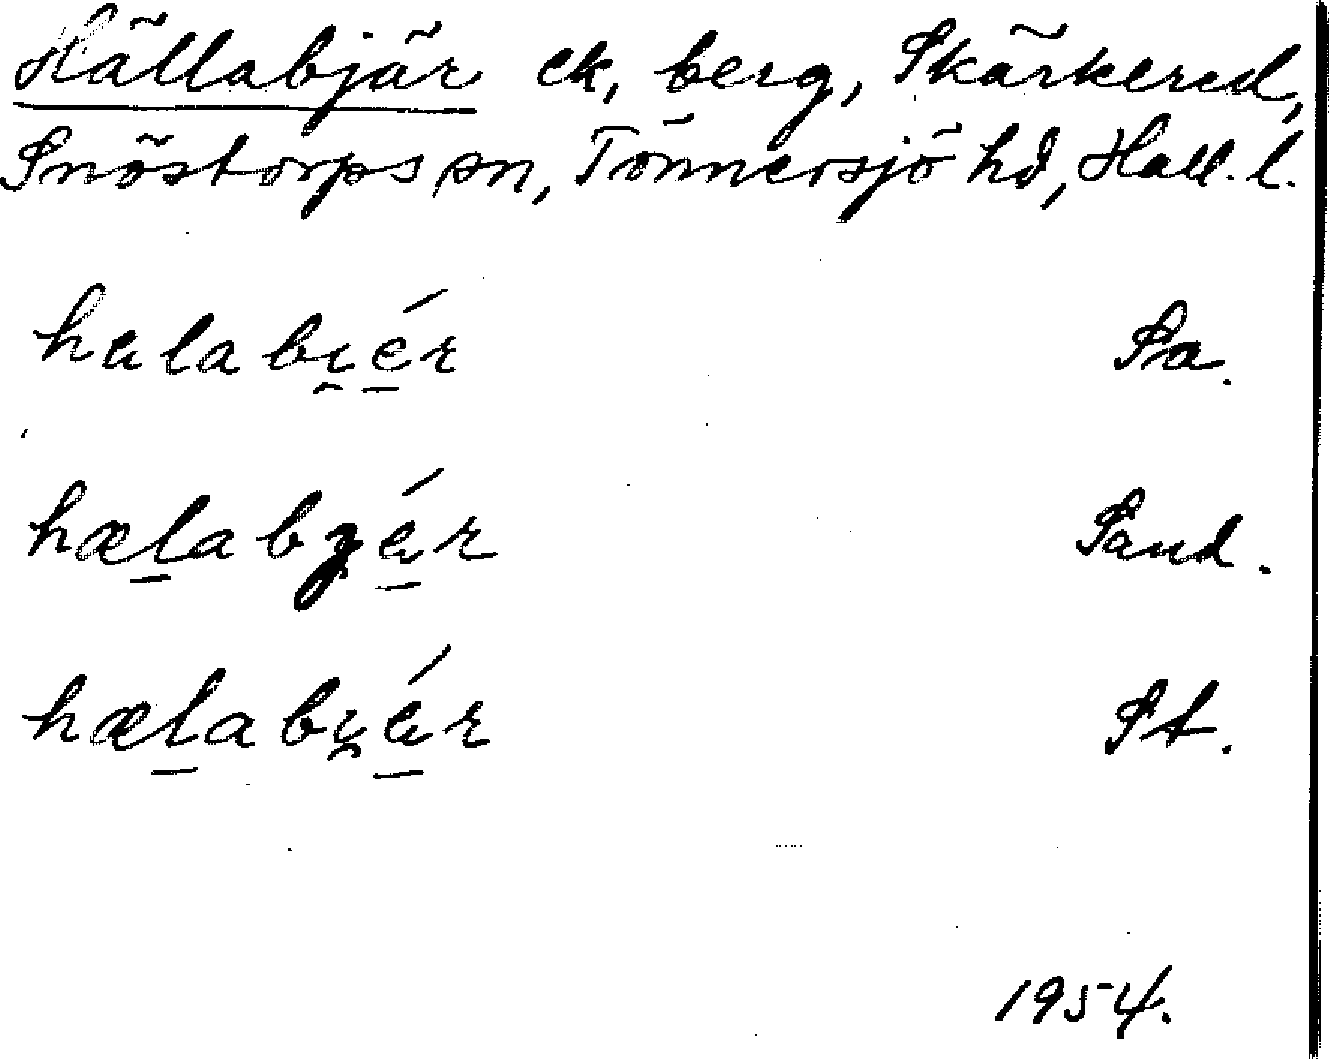 Hällabjär ek, berg, Skärkered,
Snöstorps sn, Tönnersjö hd, Hall. l.
halabi̯ér Sa.
hælabjár Sand.
hælabi̯ár St.
1954.